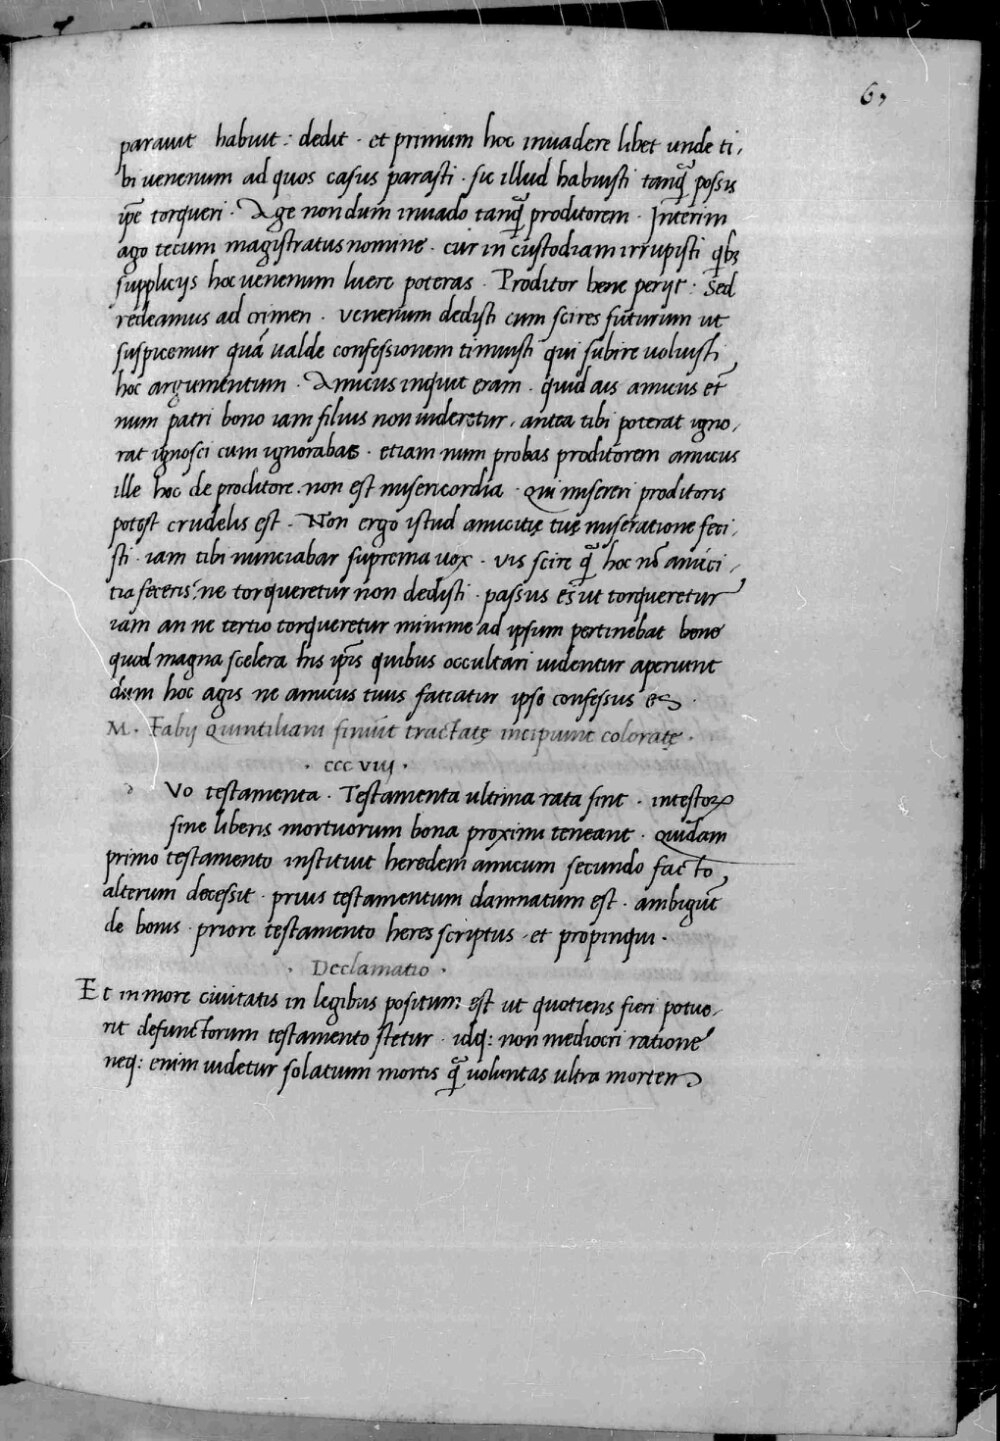 67
parauit habuit : dedit · et primum hoc inuadere libet unde ti,
bi uenenum ad quos casus parasti · sic illud habuisti tanq̃ possis
ip̃e torqueri · Age nondum inuado tanq̃ proditorem · Interim
ago tecum magistratus nomine · cur in custodiam irrupisti qbꝫ
supplicijs hoc uenenum luere poteras · Proditor bene perijt : Sed
redeamus ad crimen · uenenum dedisti cum scires futurum ut
suspicemur quã ualde confessionem timuisti qui subire uoluisti
hoc argumentum · Amicus inquit eram · quid ais amicus et̃
num patri bono iam filius non uideretur, antea tibi poterat igno,
rat ignosci cum ignorabas · etiam num probas proditorem amicus
ille hoc de proditore · non est misericordia · Qui misereri proditoris
potest crudelis est · Non ergo istud amicitię tuę miseratione feci,
sti · iam tibi nunciabar suprema uox · uis scire q̃ hoc nõ amici,
tia feceris, ne torqueretur non dedisti · passus es ut torqueretur
iam an ne tertio torqueretur minime ad ipsum pertinebat bene
quod magna scelera his ip̃is quibus occultari uidentur aperiunt
dum hoc agis ne amicus tuus fateatur ipse confessus es ·
M · Fabij Quintiliani finiũt tractatę incipiunt coloratę ·
· ccc viij ·
d Vo testamenta · Testamenta ultima rata sint · intestoꝝ
sine liberis mortuorum bona proximi teneant · Quidam
primo testamento instituit heredem amicum secundo facto
alterum decessit · prius testamentum damnatum est · ambigũt
de bonis · priore testamento heres scriptus · et propinqui ·
· Declamatio ·
Et in more ciuitatis in legibus positum est ut quotiens fieri potue,
rit defunctorum testamento stetur · idq: non mediocri ratione
neq: enim uidetur solatium mortis q̃ uoluntas ultra mortem